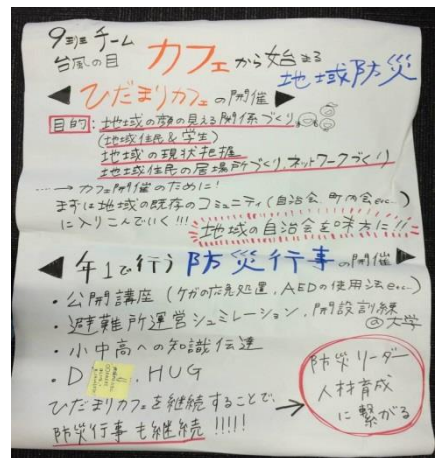 9班チーム
台風の目
カフェから始まる
地域防災
◀ひだまりカフェの開催▶
目的:地域の顔の見える関係づくり
(地域住民&学生)
地域の現状把握
地域住民の居場所づくり,ネットワークづくり
……→カフェ開催のために!
まずは地域の既存のコミュニティ(自治会,町内会etc…)
に入りこんでいく!!!
地域の自治会を味方に!!
◀年1で行う防災行事の開催▶
・公開講座(ケガの応急処置,AEDの使用法etc…)
・避難所運営シュミレーション,開設訓練
@大学
・小中高への知識伝達
・D HUG
ひだまりカフェを継続することで、
防災行事も継続!!!!!
→
防災リーダー
人材育成
に繋がる